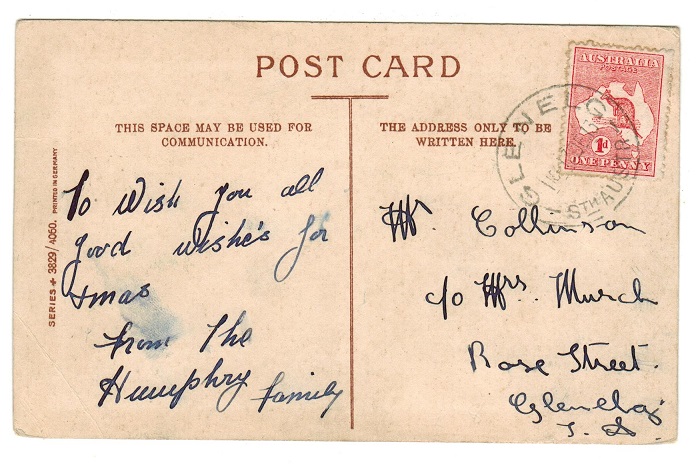 POST CARD
THIS SPACE MAY BE USED FOR
COMMUNICATION.
THE ADDRESS ONLY TO BE
WRITTEN HERE.
SERIES 3829/4060. PRINTED IN GERMANY
To Wish you all
good wishe's for
xmas
from The
Humphry family
Mr Collinson
c/o Mrs. Murch
Rose Street.
Glenelg
S. A
AUSTRALIA
POSTAGE
1d
ONE PENNY
GLENELG
STH AUSTR